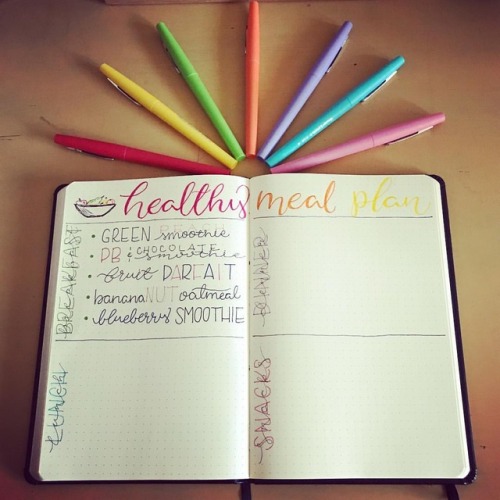 healthy meal plan
BREAKFAST
GREEN smoothie
PB & CHOCOLATE smoothie
fruit PARFAIT
banana NUT oatmeal
blueberry SMOOTHIE
LUNCH
DINNER
SNACKS